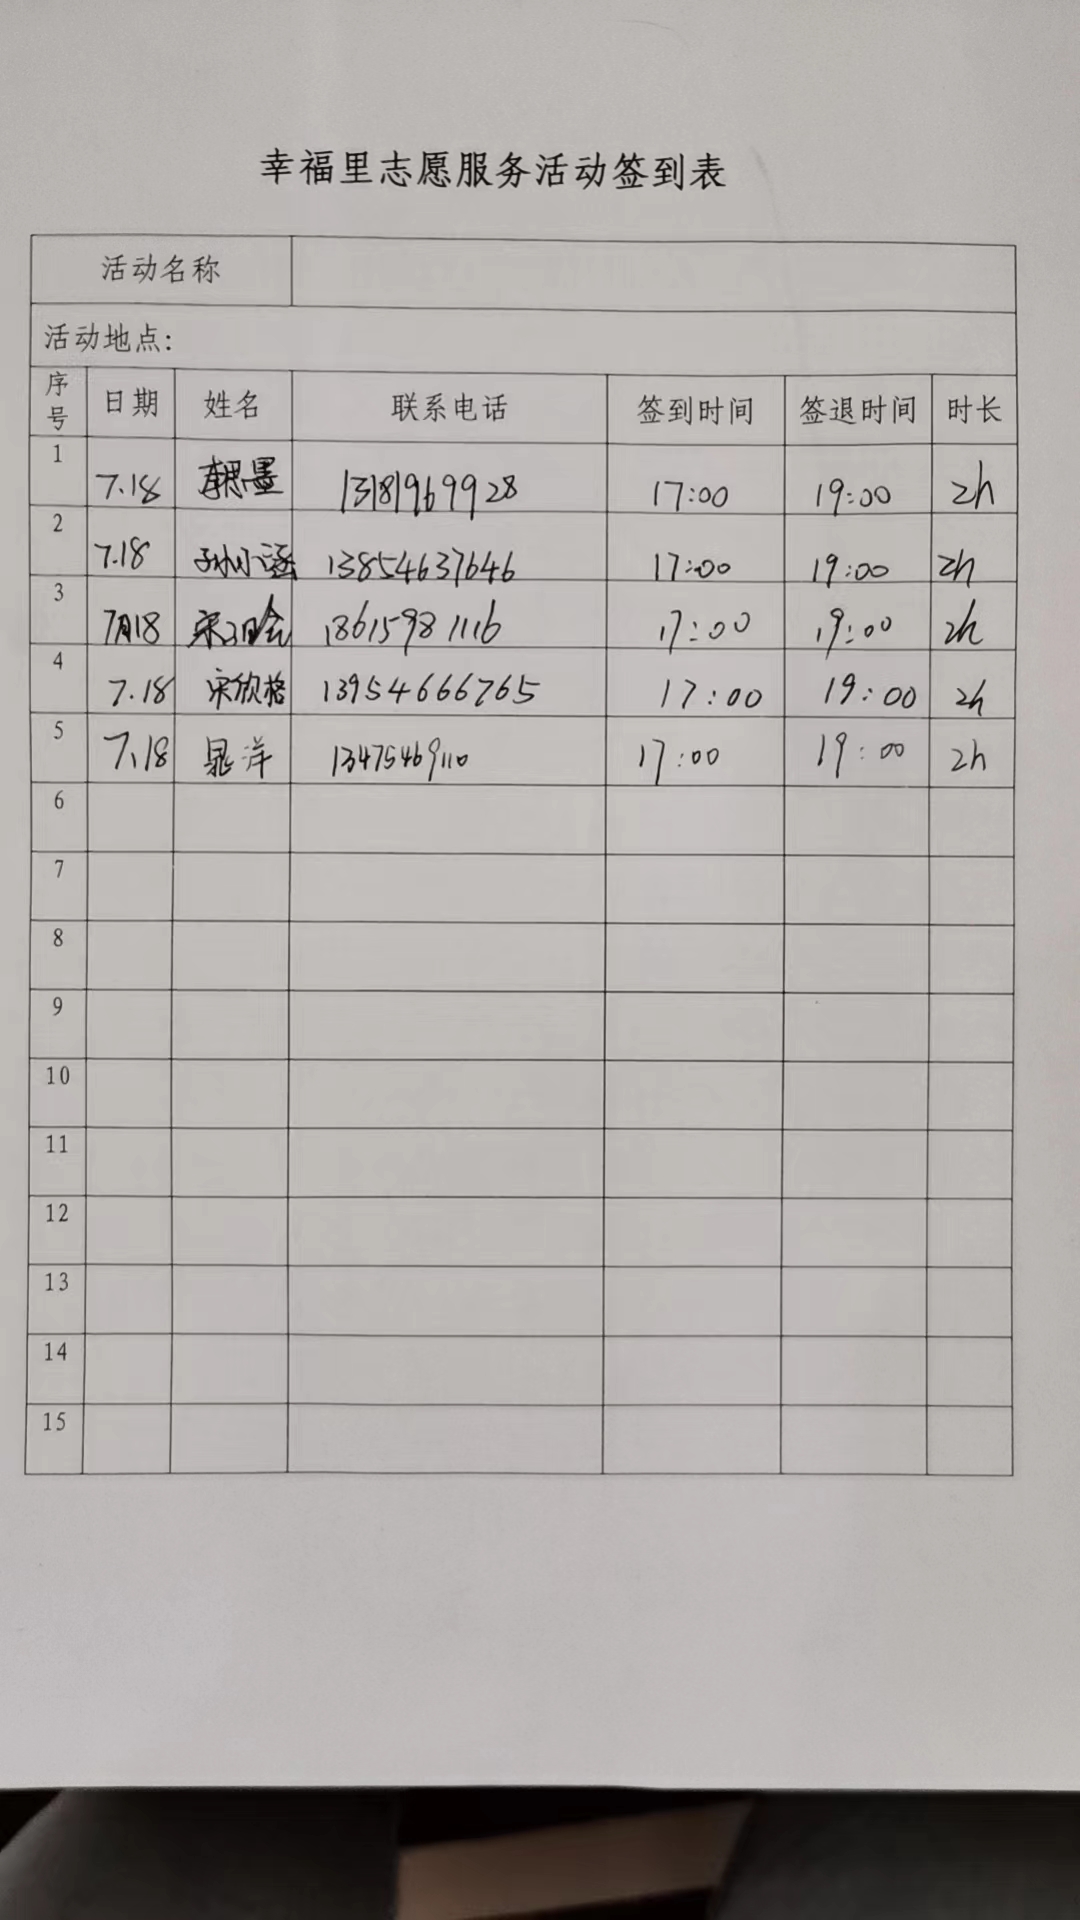 幸福里志愿服务活动签到表
活动名称
活动地点:
序号 日期 姓名 联系电话 签到时间 签退时间 时长
1 7.18 13181969928 17:00 19:00 2h
2 7.18 孙小涵 13854637646 17:00 19:00 2h
3 7月18 宋 18615981116 17:00 19:00 2h
4 7.18 宋欣格 13954666765 17:00 19:00 2h
5 7.18 晁洋 13475469110 17:00 19:00 2h
6
7
8
9
10
11
12
13
14
15